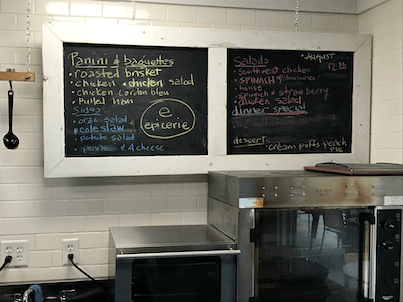 Panini & baguettes
• roasted brisket
• chicken • chicken salad
• chicken cordon bleu
• Pulled ham
Sides
• orzo salad
• cole slaw
• potato salad
• penne 4 cheese
e
epicerie
Salads
• southwest chicken
• SPINACH
house
• spinach & strawberry
• chicken salad
dinner special
dessert
• cream puffs peach
pie
August